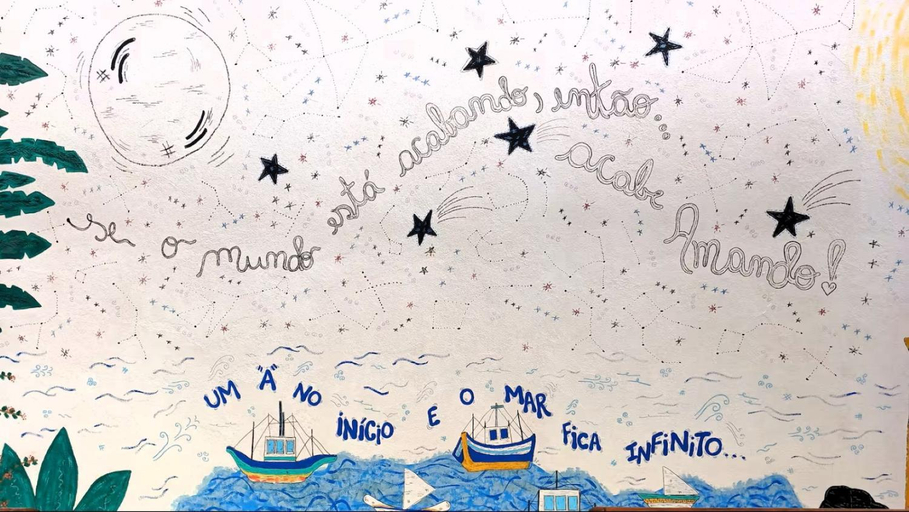 Se o mundo está acabando, então... acabe Amando!
UM "A" NO INÍCIO E O MAR FICA INFINITO...